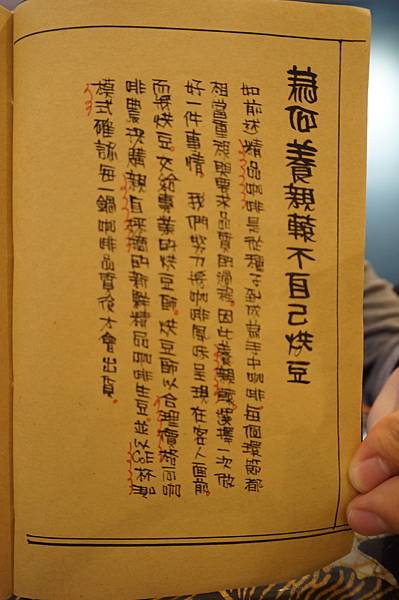 為何養親轅不自己烘豆
如前述精品咖啡是從種子到成為手中咖啡每個環節都
相當重視與要求品質的過程。因此養親轅選擇一次做
好一件事情。我們努力將咖啡風味呈現在客人面前。
而將烘豆。交給專業的烘豆師。烘豆師以合理價格向咖
啡農決購親自採摘的新鮮精品咖啡生豆並以COE杯測
模式確認每一鍋咖啡品質後才會出貨。